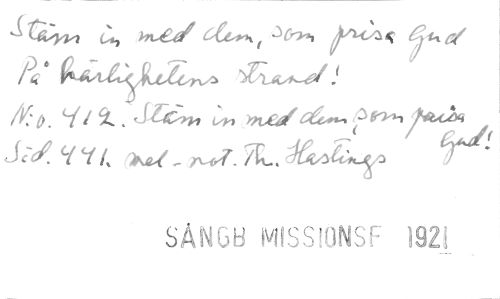 Stäm in med dem, som prisa Gud
På härlighetens strand!
N:o. 412. Stäm in med dem, som prisa Gud!
Sid. 441. mel-not. Th. Hastings
SÅNGB MISSIONSF 1921